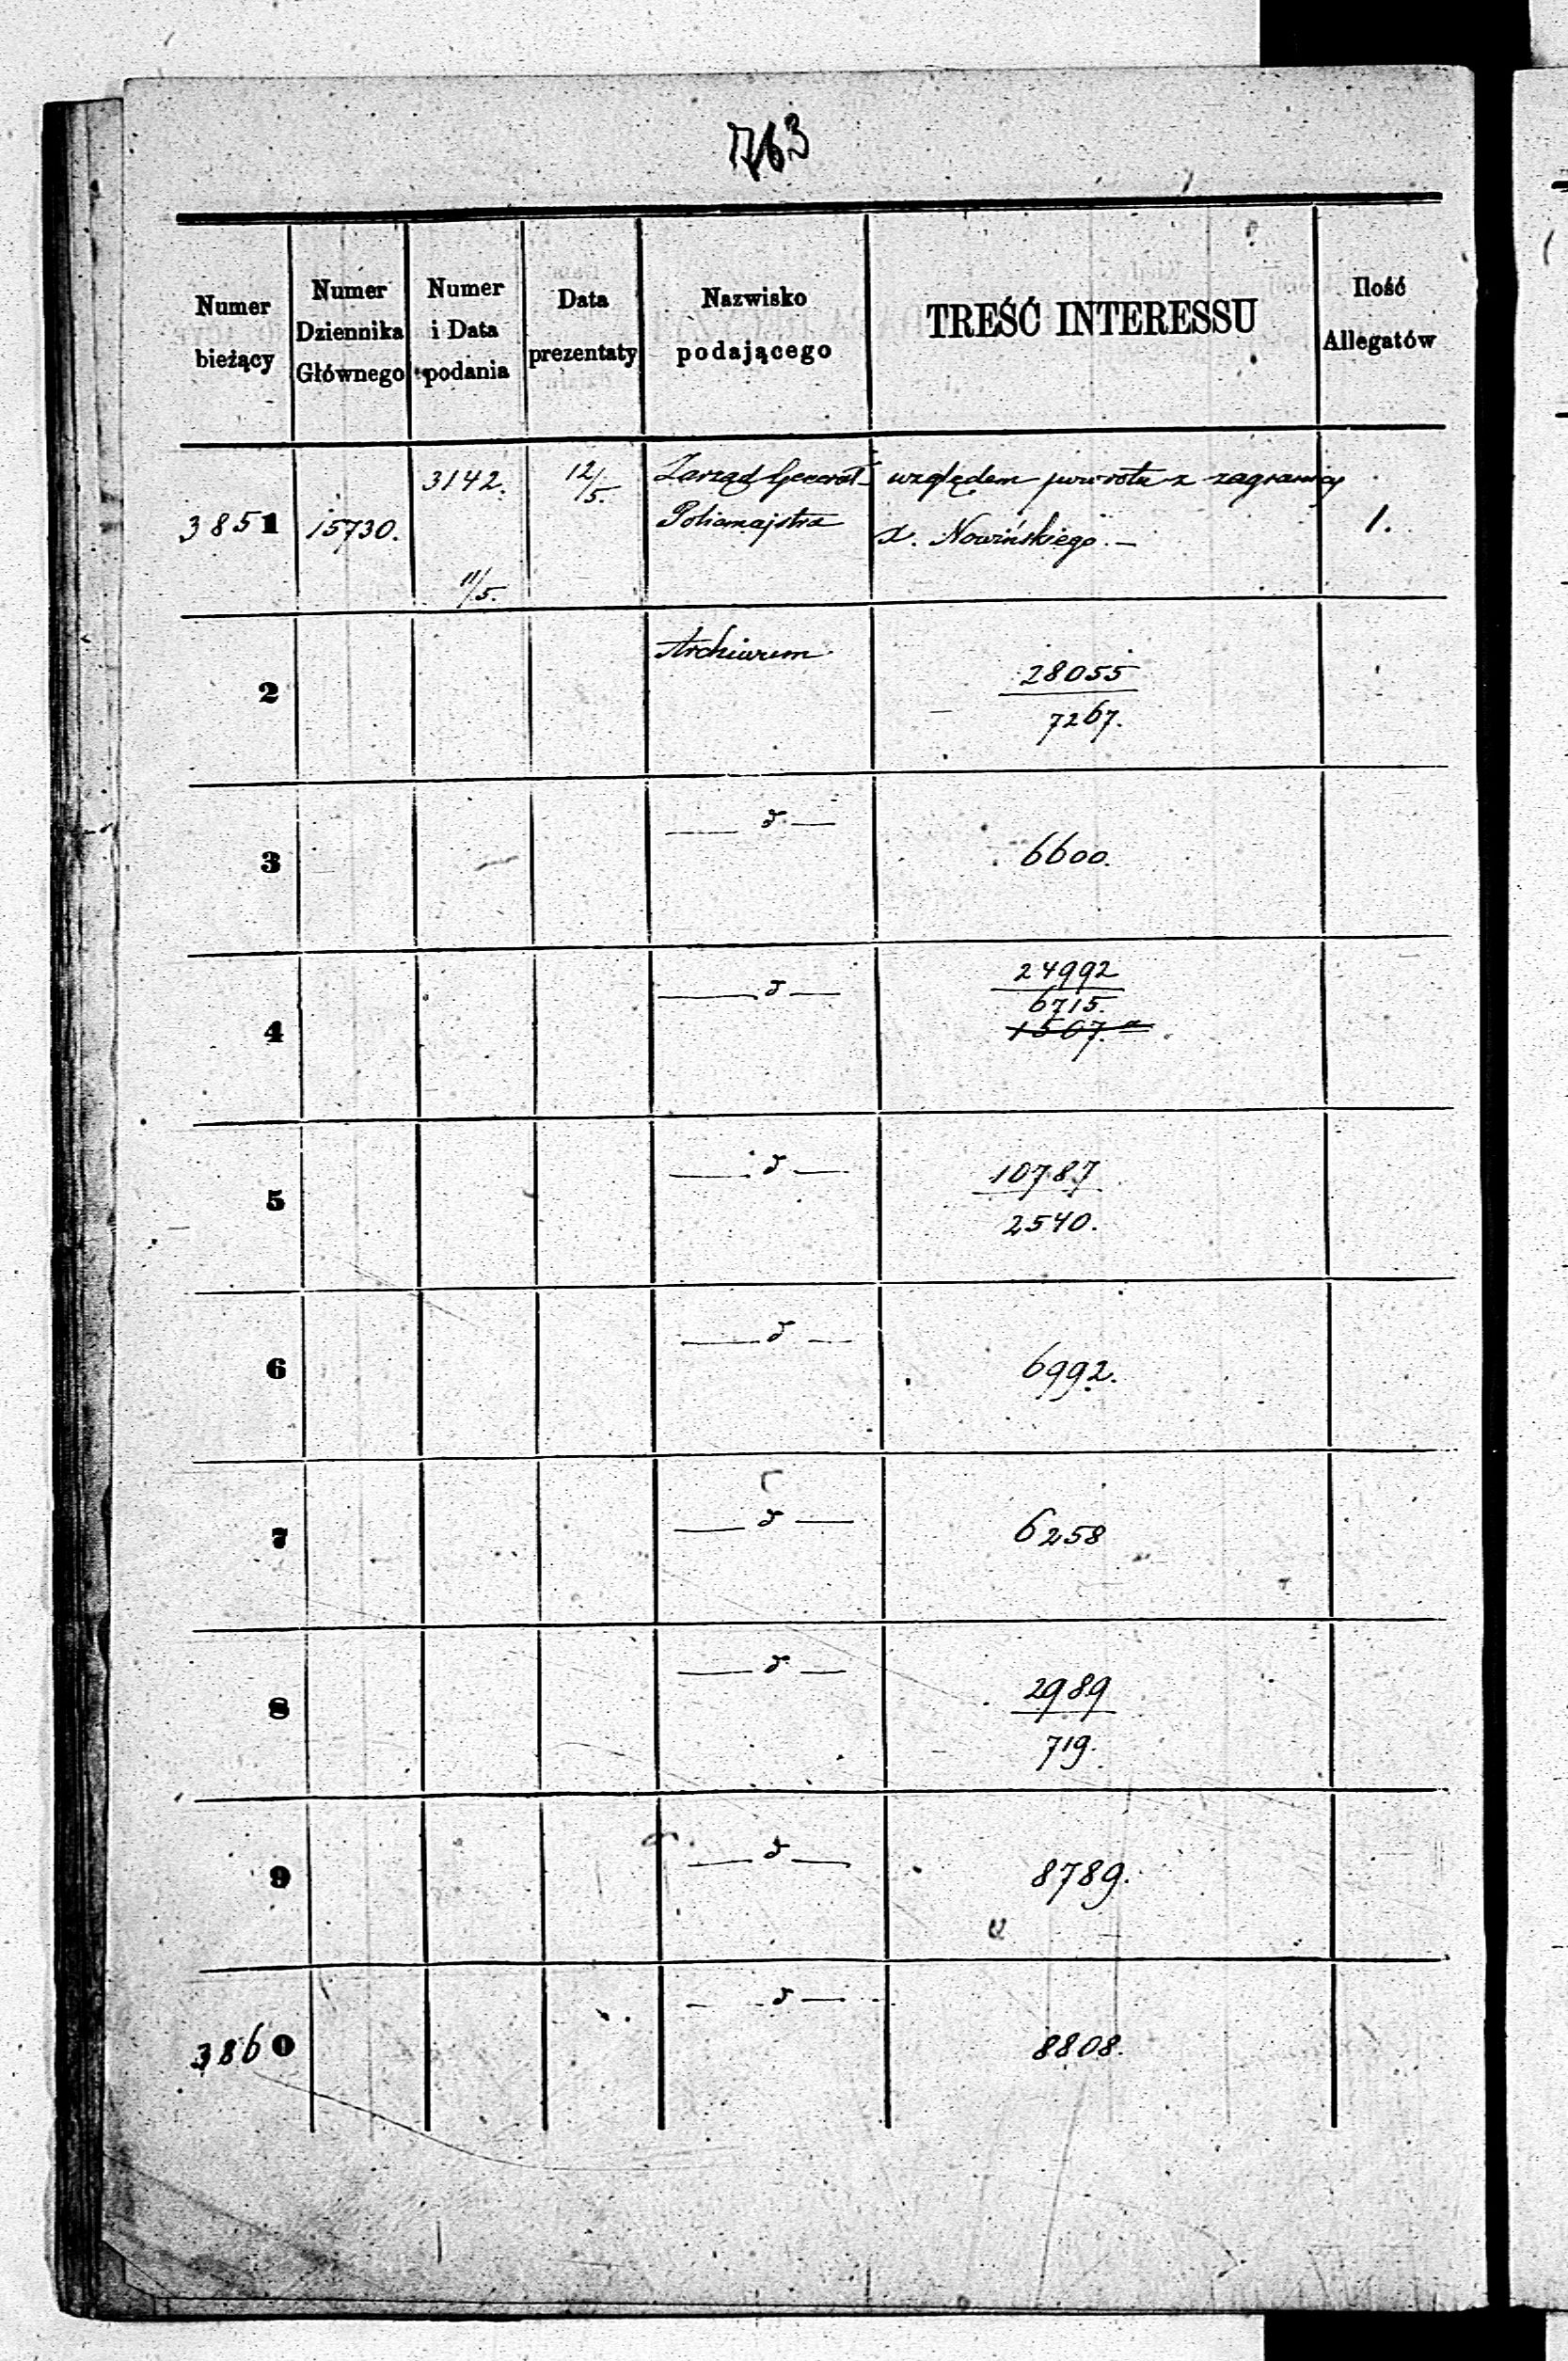 763
Numer bieżący
Numer Dziennika Głównego
Numer i Data podania
Data prezentaty
Nazwisko podającego
TREŚĆ INTERESSU
Ilość Allegatów
3851
15730.
3142.
11/5.
12/5.
Zarząd Generał
Policmajstra
względem powrotu z zagranicy
x. Nowińskiego. —
1.
2
Archiwum
28055
7267.
3
— d —
6600.
4
— d —
24992
6715.
1507.
5
— d —
10787
2540.
6
— d —
6992.
7
— d —
6258
8
— d —
2989
719.
9
— d —
8789.
3860
— d —
8808.